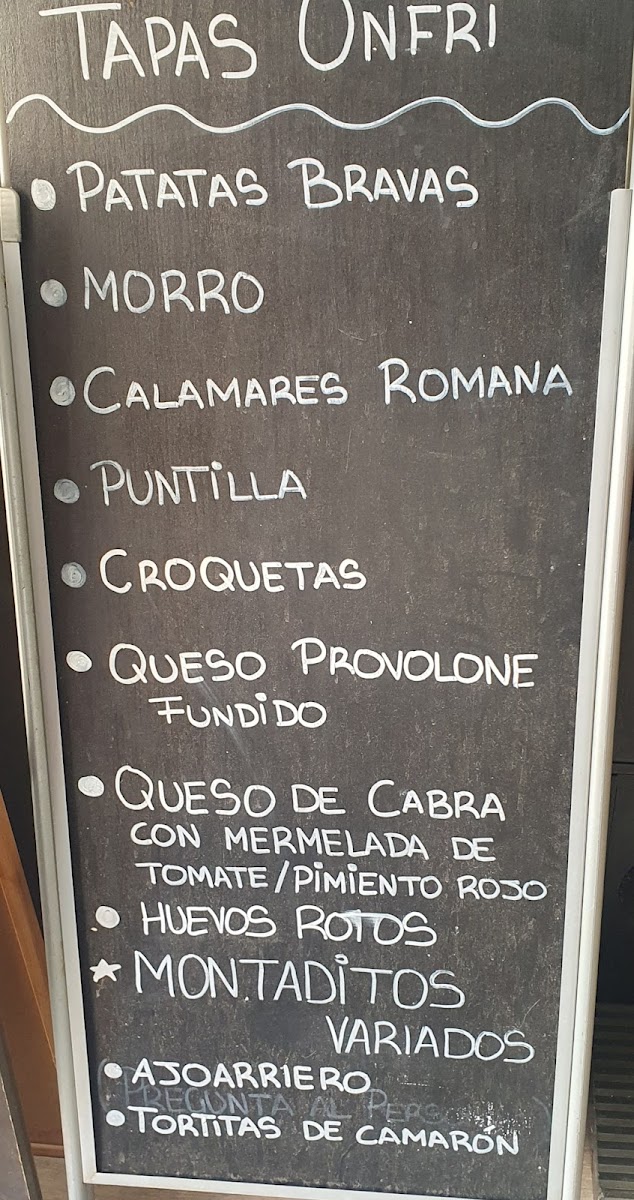 TAPAS ONFRI
PATATAS BRAVAS
MORRO
CALAMARES ROMANA
PUNTiLLA
CROQUETAS
QUESO PROVOLONE
FUNDiDO
QUESO DE CABRA
CON MERMELADA DE
TOMATE/PiMiENTO ROJO
HUEVOS ROTOS
MONTADiTOS
VARIADOS
AJOARRIERO
(PREGUNTA AL
TORTITAS DE CAMARÓN